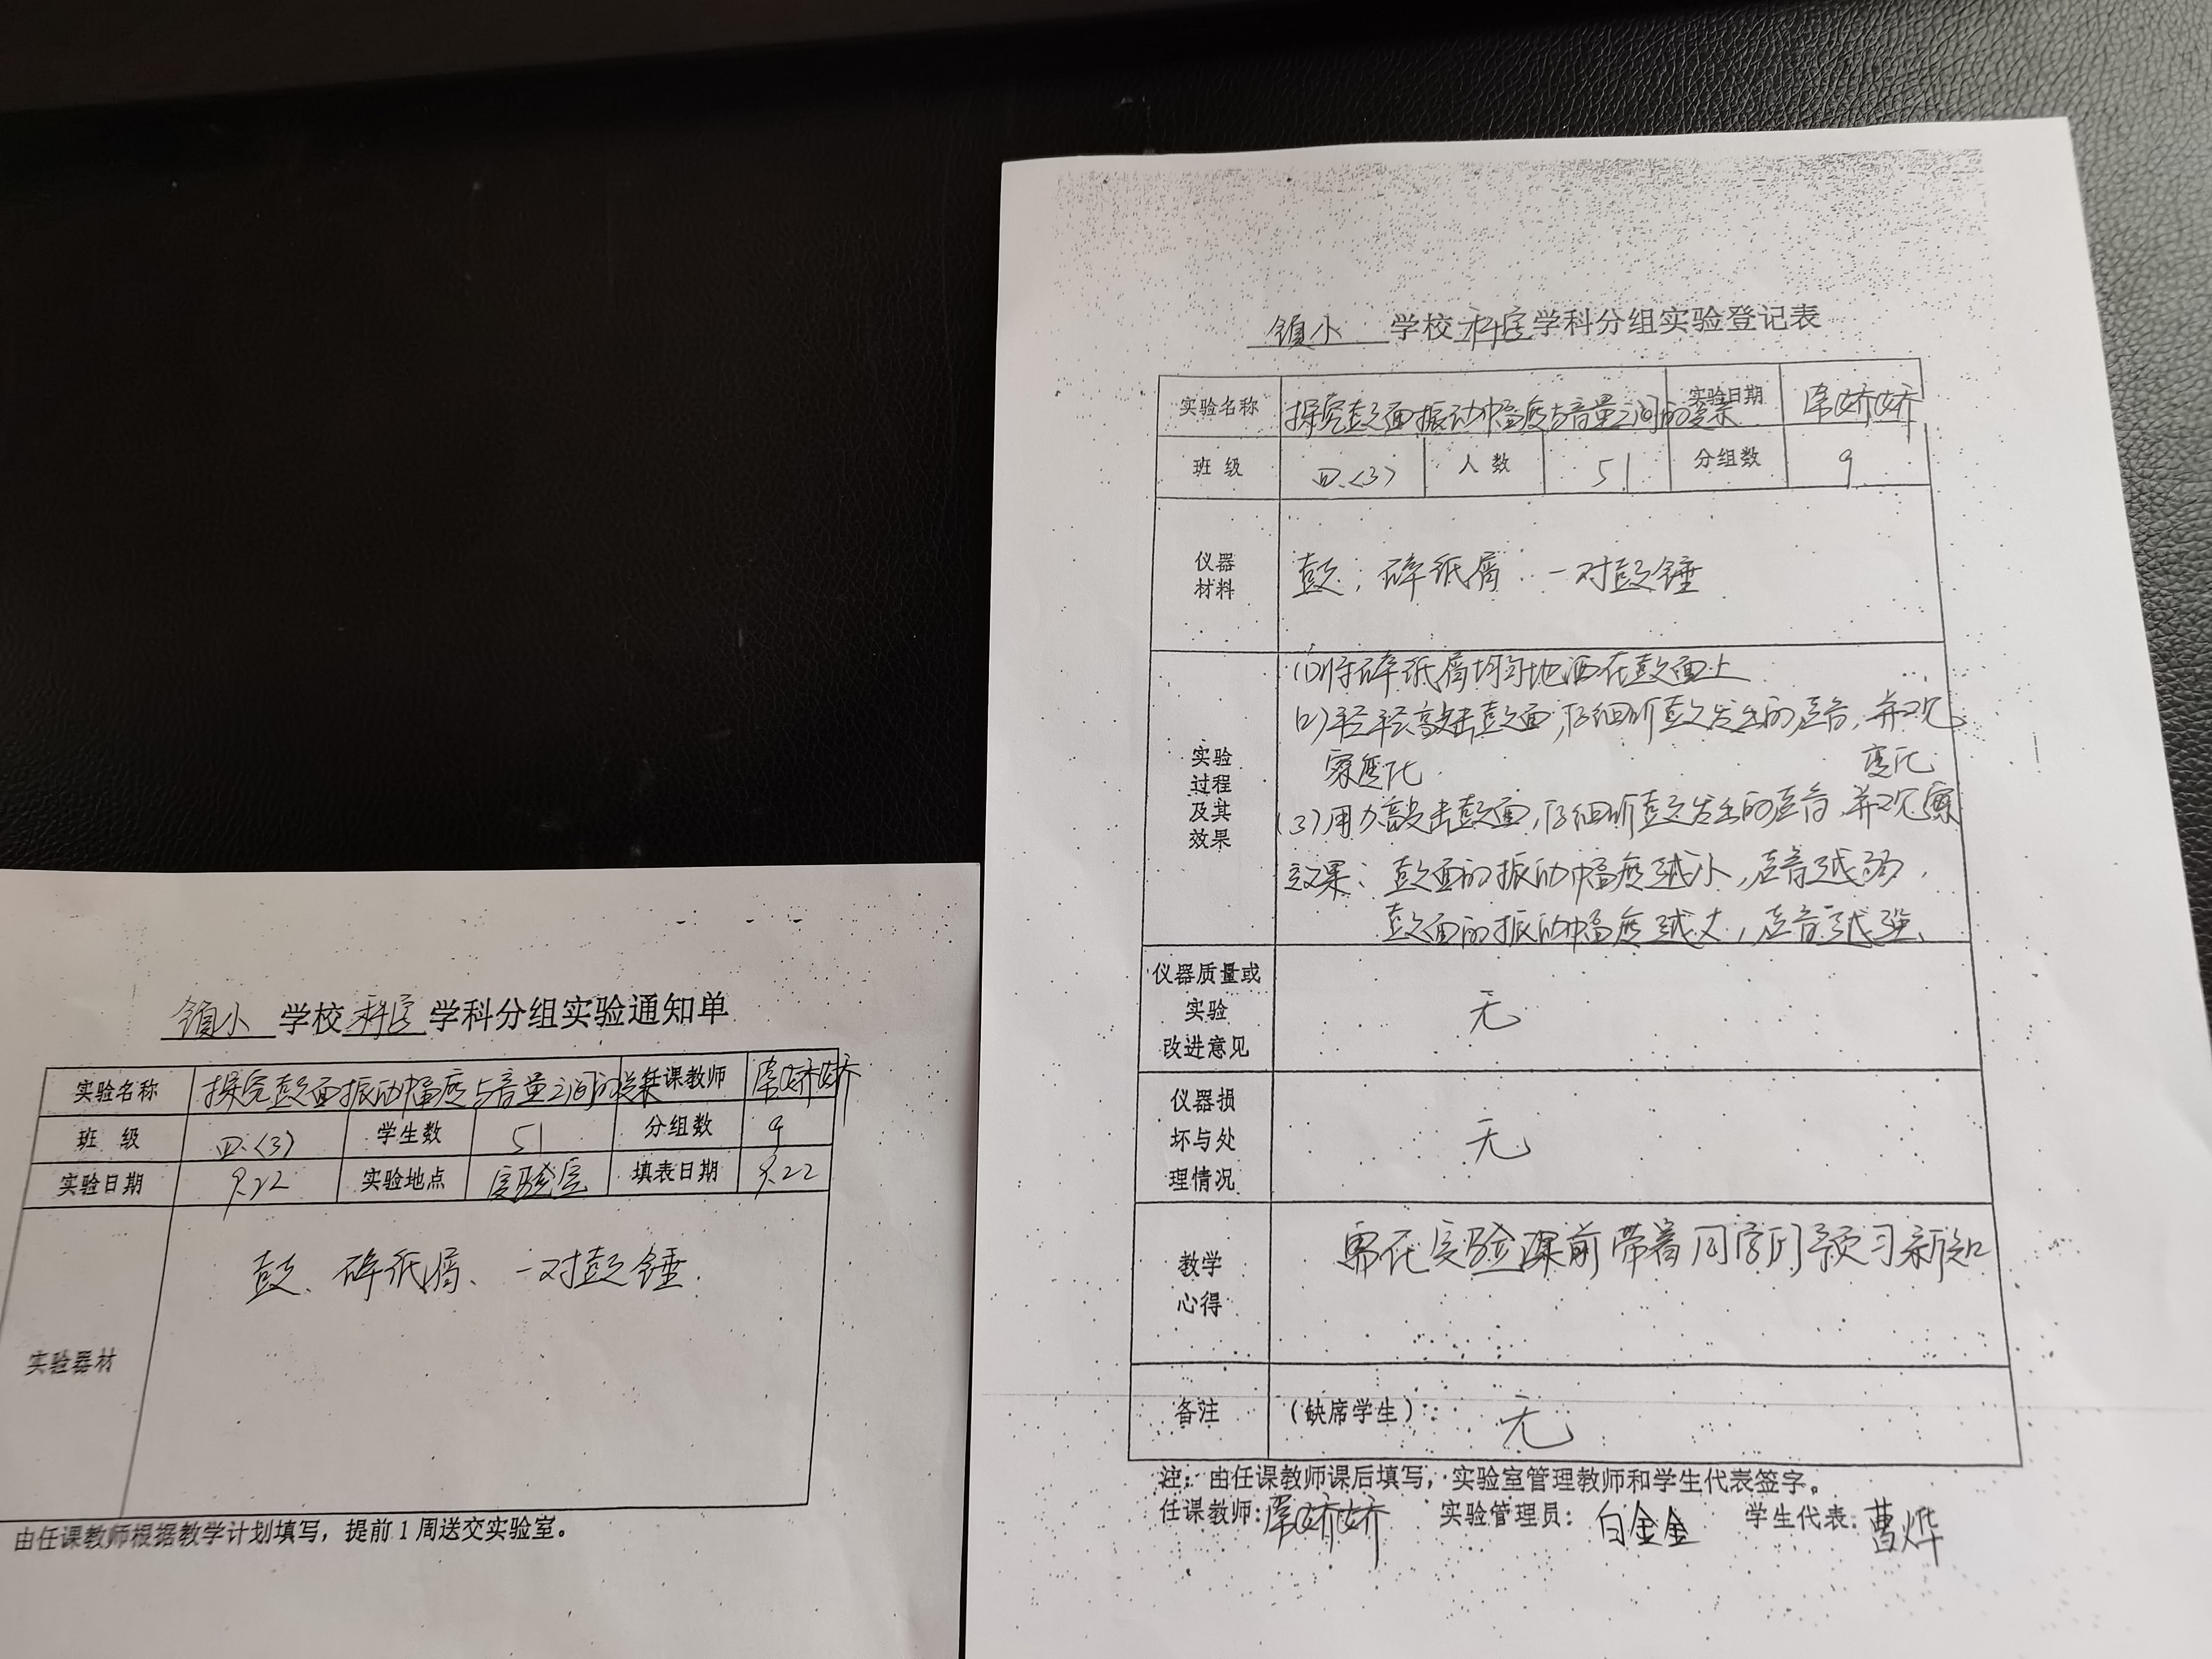 镇小 学校 科学 学科分组实验通知单
实验名称 探究鼓面振动幅度与音量之间的关系 任课教师 常娇娇
班 级 四.(3) 学生数 51 分组数 9
实验日期 9.22 实验地点 实验室 填表日期 9.22
实验器材 鼓、碎纸屑、一对鼓锤.
由任课教师根据教学计划填写，提前1周送交实验室。
镇小 学校 科学 学科分组实验登记表
实验名称 探究鼓面振动幅度与音量之间的关系 实验日期 常娇娇
班 级 四.(3) 人 数 51 分组数 9
仪器
材料
鼓、碎纸屑、一对鼓锤
实验
过程
及其
效果
(1)将碎纸屑均匀地洒在鼓面上
(2)轻轻敲击鼓面,仔细听鼓发出的声音,并观
察变化
(3)用力敲击鼓面,仔细听鼓发出的声音,并观察
变化
效果：鼓面的振动幅度越小,声音越弱.
鼓面的振动幅度越大,声音越强、
仪器质量或
实验
改进意见
无
仪器损
坏与处
理情况
无
教学
心得
要在实验课前带着同学们预习新知
备注 （缺席学生）： 无
注：由任课教师课后填写，实验室管理教师和学生代表签字。
任课教师: 常娇娇 实验管理员： 白金金 学生代表: 曹烨